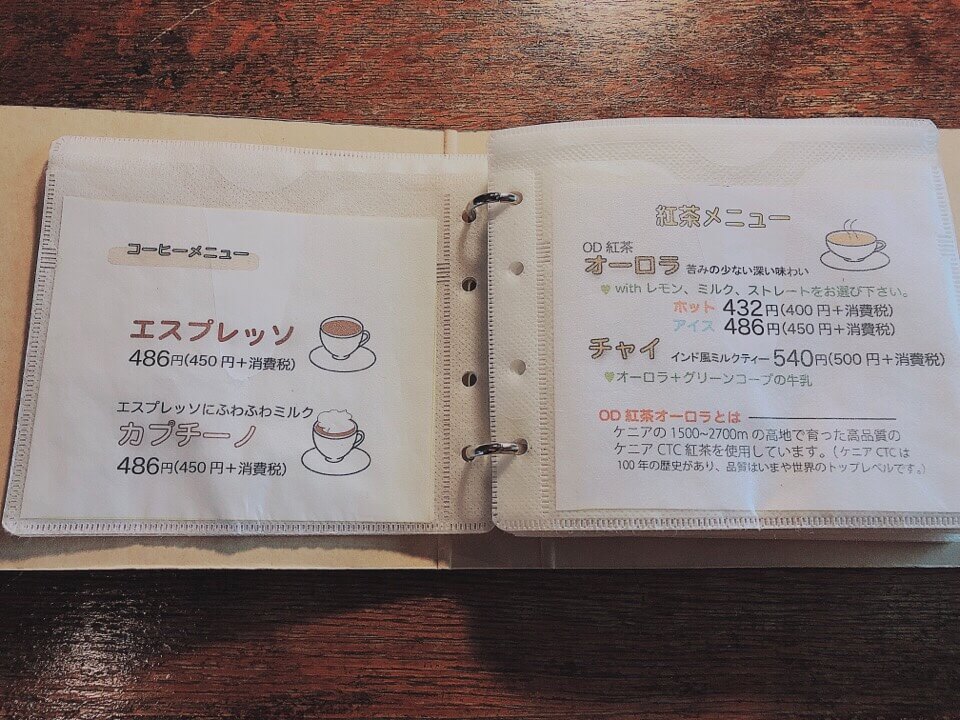 コーヒーメニュー
エスプレッソ
486円(450円+消費税)
エスプレッソにふわふわミルク
カプチーノ
486円(450円+消費税)
紅茶メニュー
OD 紅茶
オーロラ 苦みの少ない深い味わい
with レモン、ミルク、ストレートをお選び下さい。
ホット 432円(400円+消費税)
アイス 486円(450円+消費税)
チャイ インド風ミルクティー 540円(500円+消費税)
オーロラ+グリーンコープの牛乳
OD 紅茶オーロラとは
ケニアの1500~2700mの高地で育った高品質の
ケニア CTC 紅茶を使用しています。(ケニア CTC は
100年の歴史があり、品質はいまや世界のトップレベルです。)